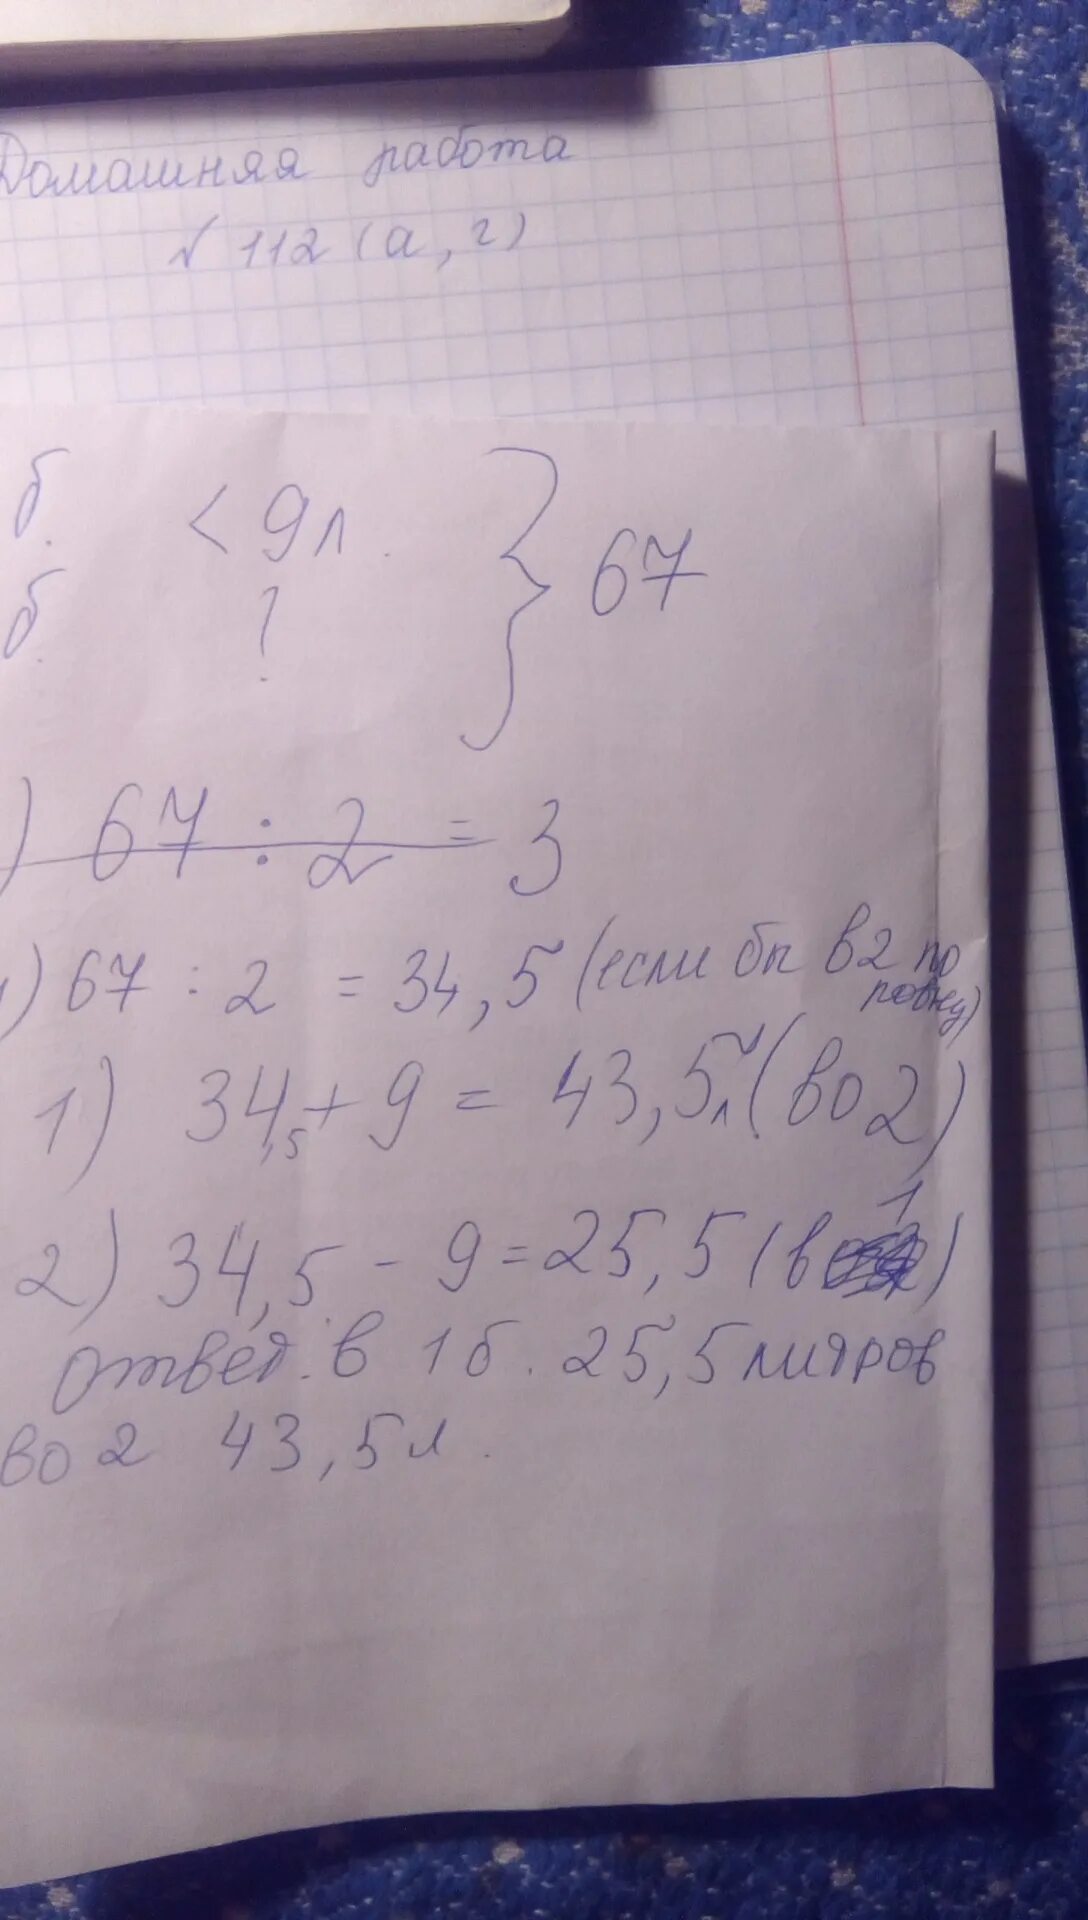 Домашняя работа
√ 112 (а, г)
б. < 9л.
б. ?
} 67
) 67 : 2 = 3
) 67 : 2 = 34,5 (если бы в 2 по ровну)
1) 34,5 + 9 = 43,5л (во 2)
2) 34,5 - 9 = 25,5 (в 1)
ответ. в 1 б. 25,5 литров
во 2 43,5 л.